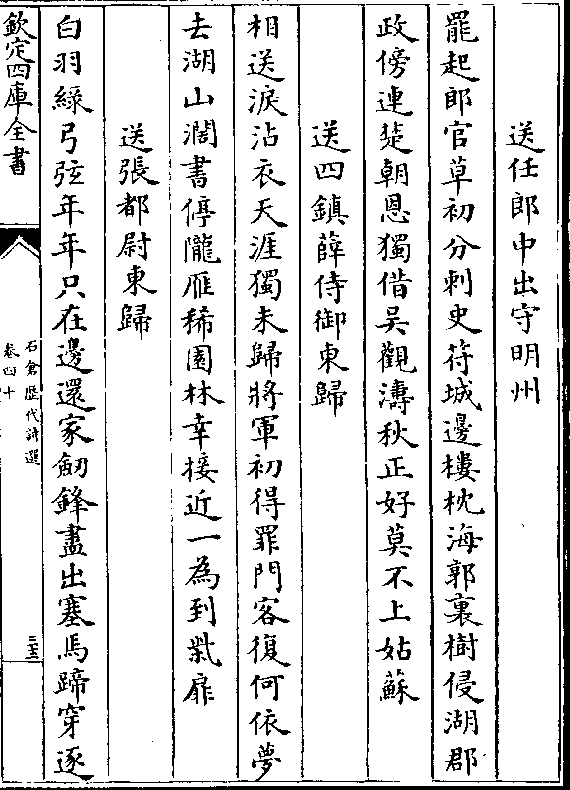 送任郎中出守明州
罷起郎官草初分刺史符城邊樓枕海郭裏樹侵湖郡
政傍連楚朝恩獨借吳觀濤秋正好莫不上姑蘇
送四鎮薛侍御東歸
相送淚沾衣天涯獨未歸將軍初得罪門客復何依夢
去湖山濶書停隴雁稀園林幸接近一為到柴扉
送張都尉東歸
白羽綠弓弦年年只在邊還家劒鋒盡出塞馬蹄穿逐
欽定四庫全書
石倉歴代詩選
卷四十
三十三